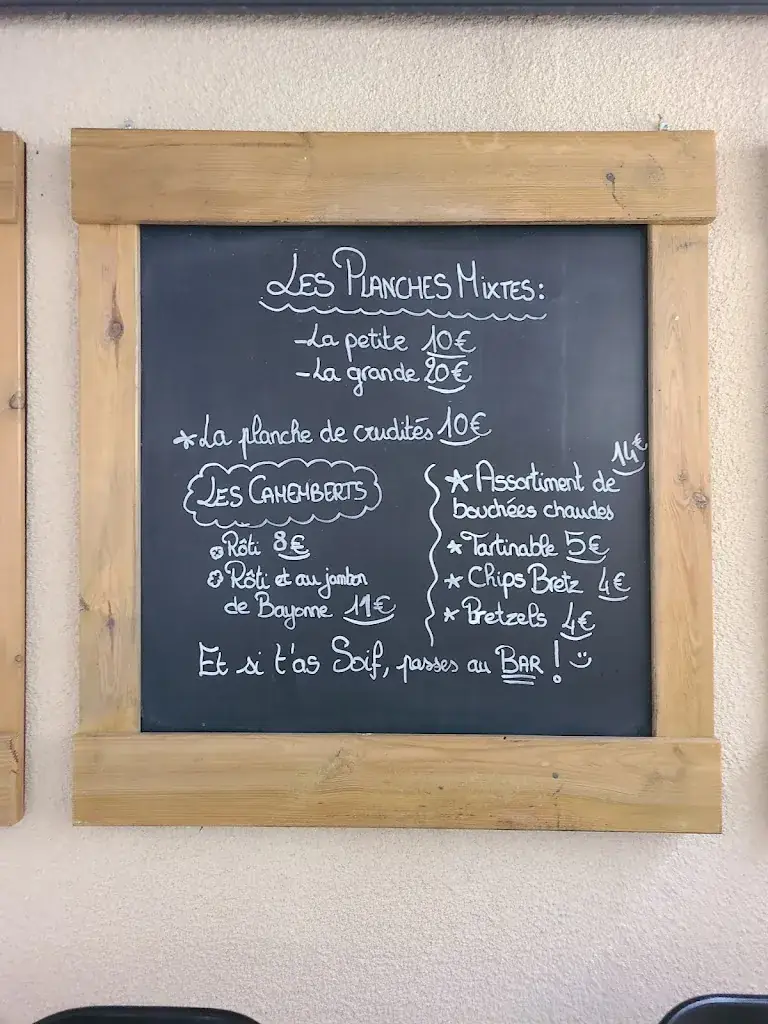 Les Planches Mixtes:
-La petite 10€
-La grande 20€
*La planche de crudités 10€
Les Camemberts
Rôti 8€
Rôti et au jambon
de Bayonne 11€
14€
*Assortiment de
bouchées chaudes
*Tartinable 5€
*Chips Bretz 4€
*Bretzels 4€
Et si t'as Soif, passes au BAR ! :)